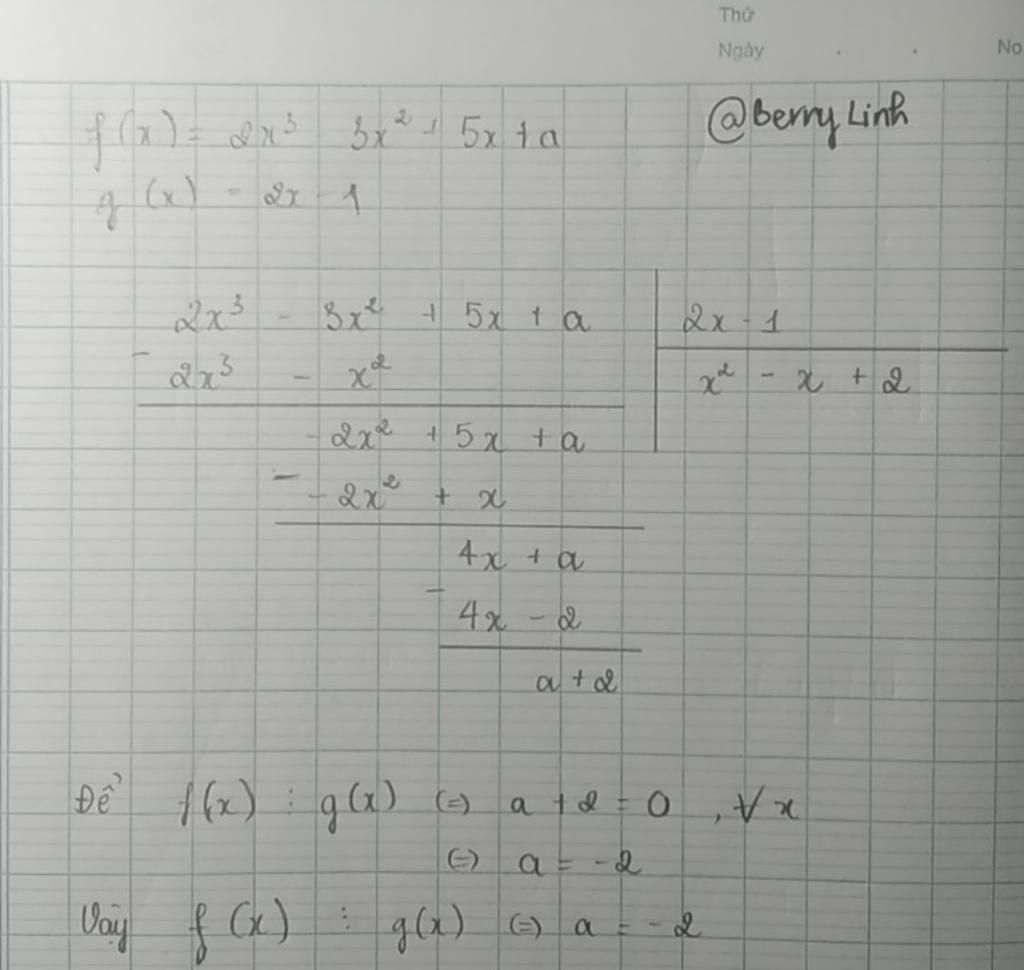 Thứ
Ngày . . No
@Berry Linh
f(x) = 2x³ - 3x² + 5x + a
g(x) = 2x - 1
2x³ - 3x² + 5x + a | 2x - 1
- 2x³ - x² | x² - x + 2
-2x² + 5x + a
- -2x² + x
4x + a
- 4x - 2
a + 2
Để f(x) ⋮ g(x) (=) a + 2 = 0 , ∀x
(=) a = -2
Vậy f(x) ⋮ g(x) (=) a = -2